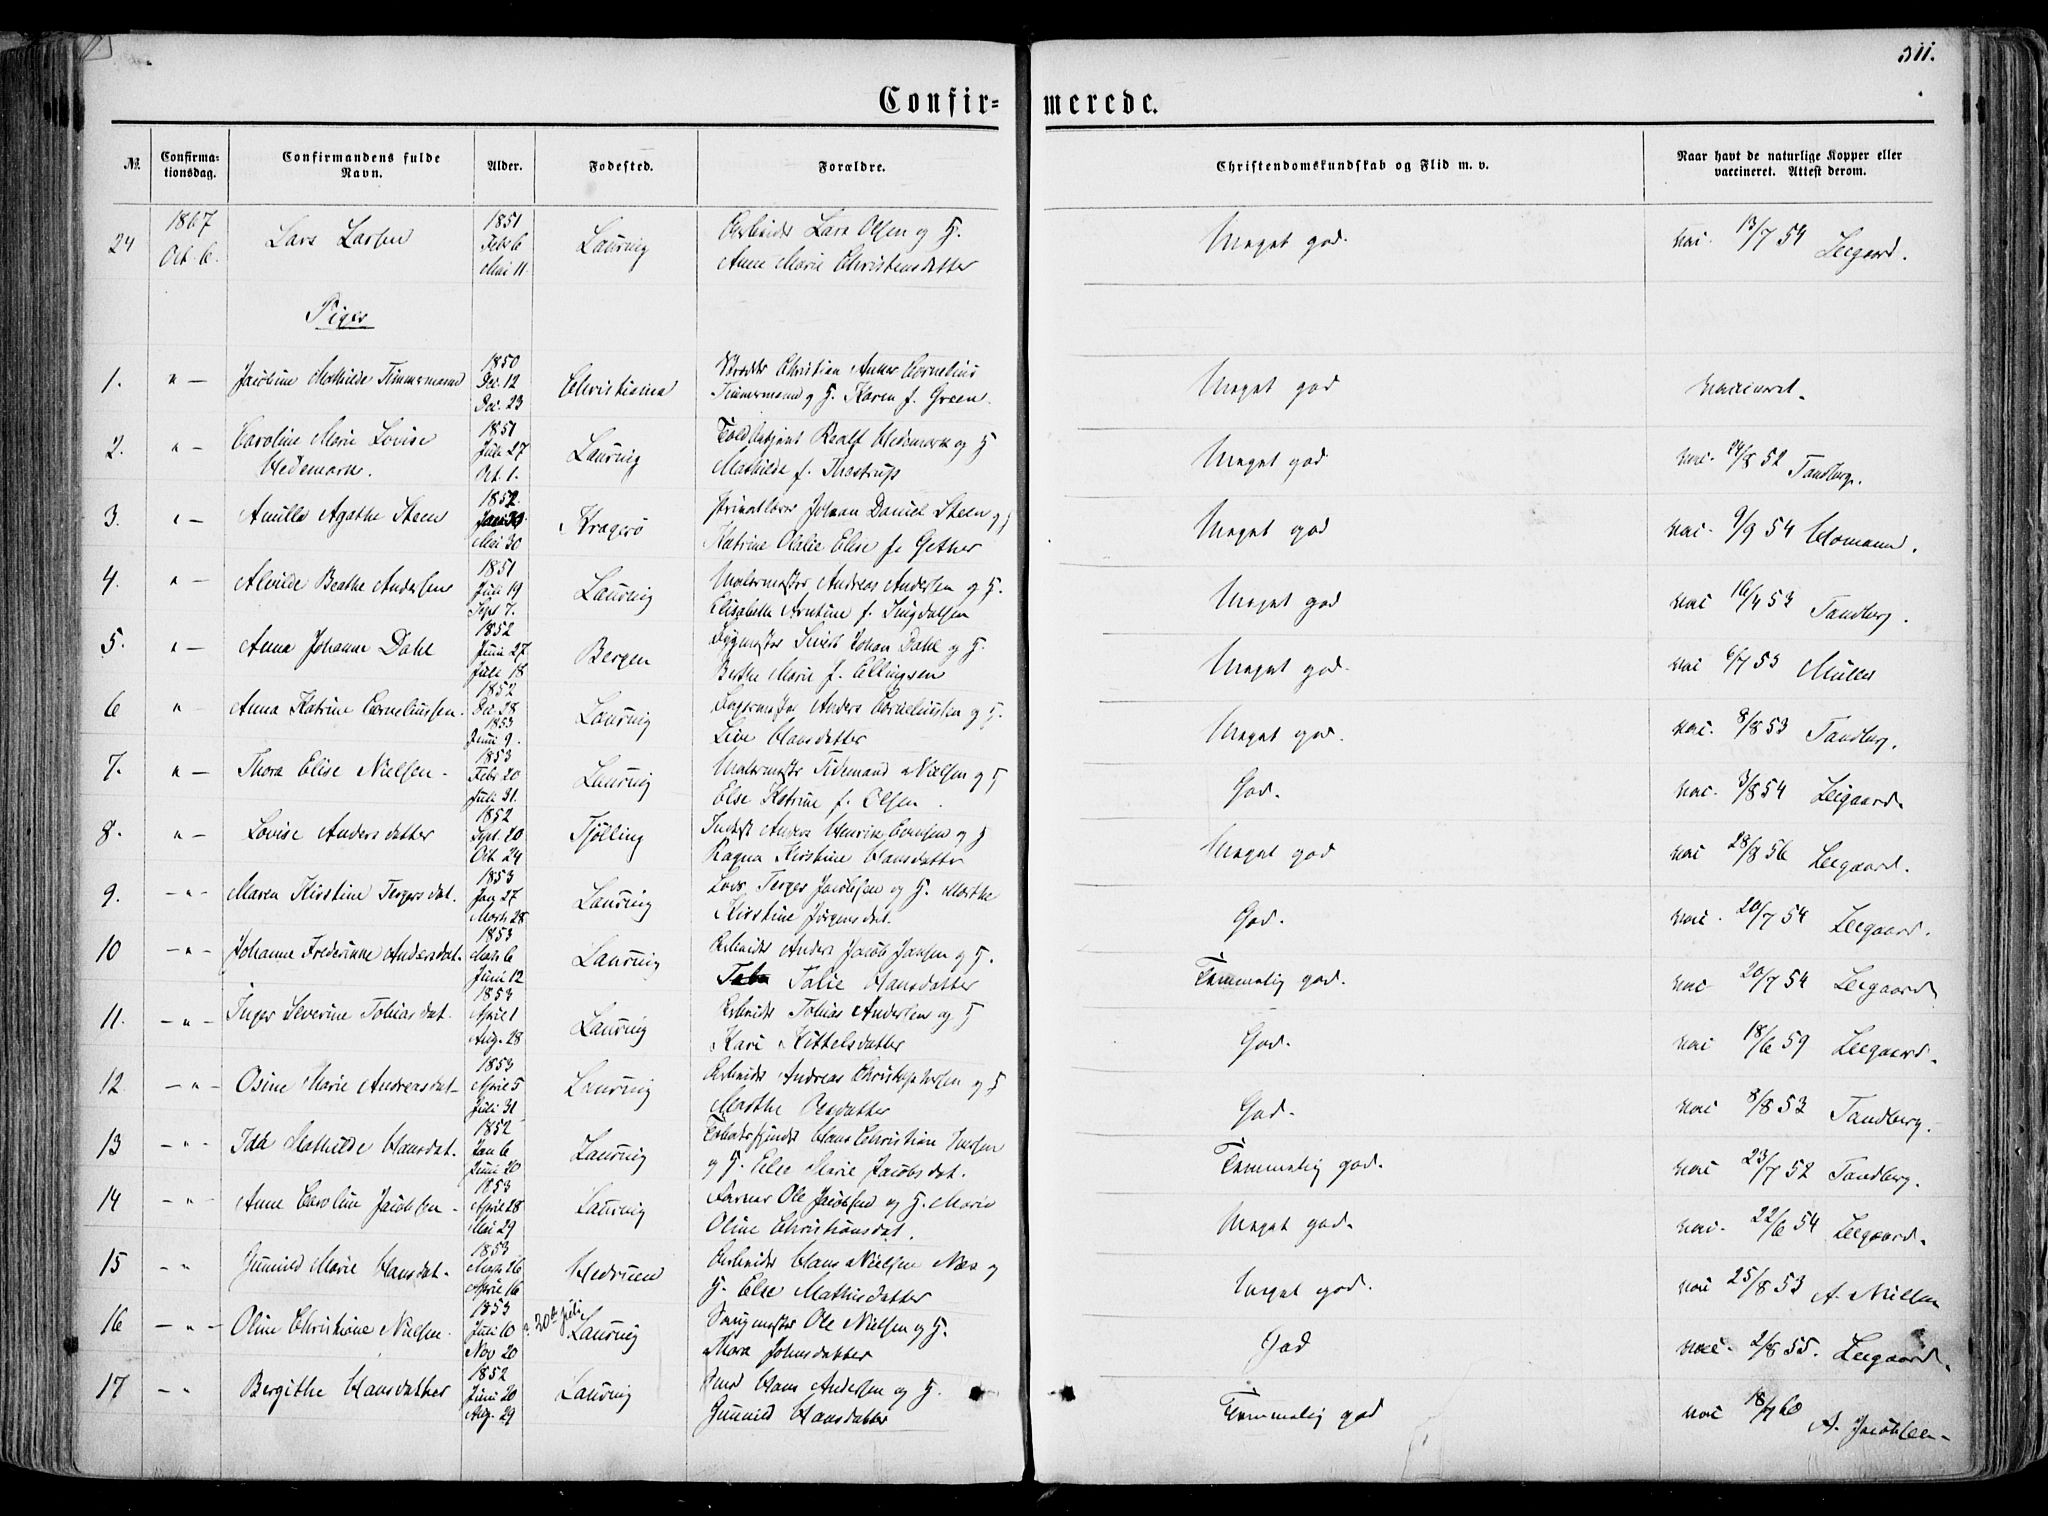 311.
Confir- merede.
№ Confirma-tionsdag. Confirmandens fulde Navn. Alder. Fødested. Forældre. Christendomskundskab og Flid m. v. Naar havt de naturlige Kopper eller vaccineret. Attest derom.
1867 1851
24 Oct. 6. Lars Larsen Febr 6 Laurvig Arbeids Lars Olsen og H. Meget god. vac. 13/7 54 Leegaard.
Mai 11 Anne Marie Christensdatter
Piger
1850
1. " — Jacobine Mathilde Timmermand Dec. 12 Christiania Christian Cornelius Meget god vaccineret.
Dec. 23 Timmermand og H. Karen f. Green.
1851
2. " — Caroline Marie Lovise Juli 27 Laurvig Realf Hedemark og H Meget god vac. 24/8 52 Tandberg.
Hedemark. Oct. 1. Mathilde f. Thostrup
1852
3. " — Amilla Agathe Steen Kragerø Johan Daniel Steen og H Meget god vac. 9/9 54 Homann.
Mai 30 Katrine Olalie Elise f. Gether
1851
4. " — Alvilde Beathe Andersen Juli 19 Laurvig Malermester Andreas Andersen og H. Meget god vac 16/4 53 Tandberg.
Sept 7. Elisabeth Arntine f. Ingdalsen
1852
5. " — Anna Johanne Dahl Juni 27 Bergen Sivert Johan Dahl og H. Meget god. vac 6/7 53 Müller
Juli 18 Berthe Marie f. Ellingsen
1852
6 " — Anna Katrine Corneliussen. Dec. 28 Laurvig Anders Corneliussen og H. Meget god. vac. 8/8 53 Tandberg.
1853
Juni 9. Line Hansdatter
1853
7. " — Thora Elise Nielsen. Febr 20 Laurvig Malermester Tidemand Nielsen og H God. vac. 3/8 54 Leegaard.
Juli 31. Else Katrine f. Olsen.
1852
8. " — Lovise Andersdatter Sept. 20 Tjølling Inderst Anders Henrik Evensen og H Meget god vac 28/8 56 Leegaard.
Oct 24 Ragna Kirstine Hansdatter
1853
9. — " — Maren Kirstine Tergersdat. Jan 27 Laurvig Lods Terger Jacobsen og H. Marthe God. vac. 20/7 54 Leegaard.
Marts 28. Kirstine Jørgensdat.
1853
10 — " — Johanne Frederikke Andersdat. Marts 6 Laurvig Arbeids Anders Jacob Jansen og H. Temmelig god. vac 20/7 54 Leegaard
Juni 12 Talie Hansdatter
1853
11. — " — Inger Severine Tobiasdat. April 1 Laurvig Arbeids Tobias Andersen og H God. vac 18/6 59 Leegaard.
Aug. 28 Kari Kittelsdatter
1853
12 — " — Osine Marie Andreasdat — April 5 Laurvig Arbeids Andreas Christophersen og H God. vac 8/8 53 Tandberg.
Juli 31 Marthe Olsdatter
1852
13 — " — Ida Mathilde Hansdat. Jan 6 Laurvig Hans Christian Iversen Temmelig god. vac 23/7 52 Tandberg.
Juni 20 og H. Else Marie Jacobsdat.
1853
14 — " — Anne Caroline Jacobsen — April 28 Laurvig Farver Ole Jacobsen og H. Marie Meget god. vac. 22/6 54 Leegaard.
Mai 29 Oline Christiansdat.
1853
15 — " Gunnild Marie Hansdat. Marts 26 Hedrum Arbeids Hans Nielsen Næs og Meget god. vac 25/8 53 A. Nielsen
April 16 H. Else Mathisdatter
1853 20de Juli
16 — " — Oline Christine Nielsen. Juli 10 Laurvig Ole Nielsen og H. God vac. 2/8 55. Leegaard.
Nov 20 Thora Johnsdatter
1852
17 — " Bergithe Hansdatter Juni 20 Laurvig Hans Andersen og H. Temmelig god vac 18/7 60 A. Jacobsen —
Aug. 29 Gunnild Hansdatter